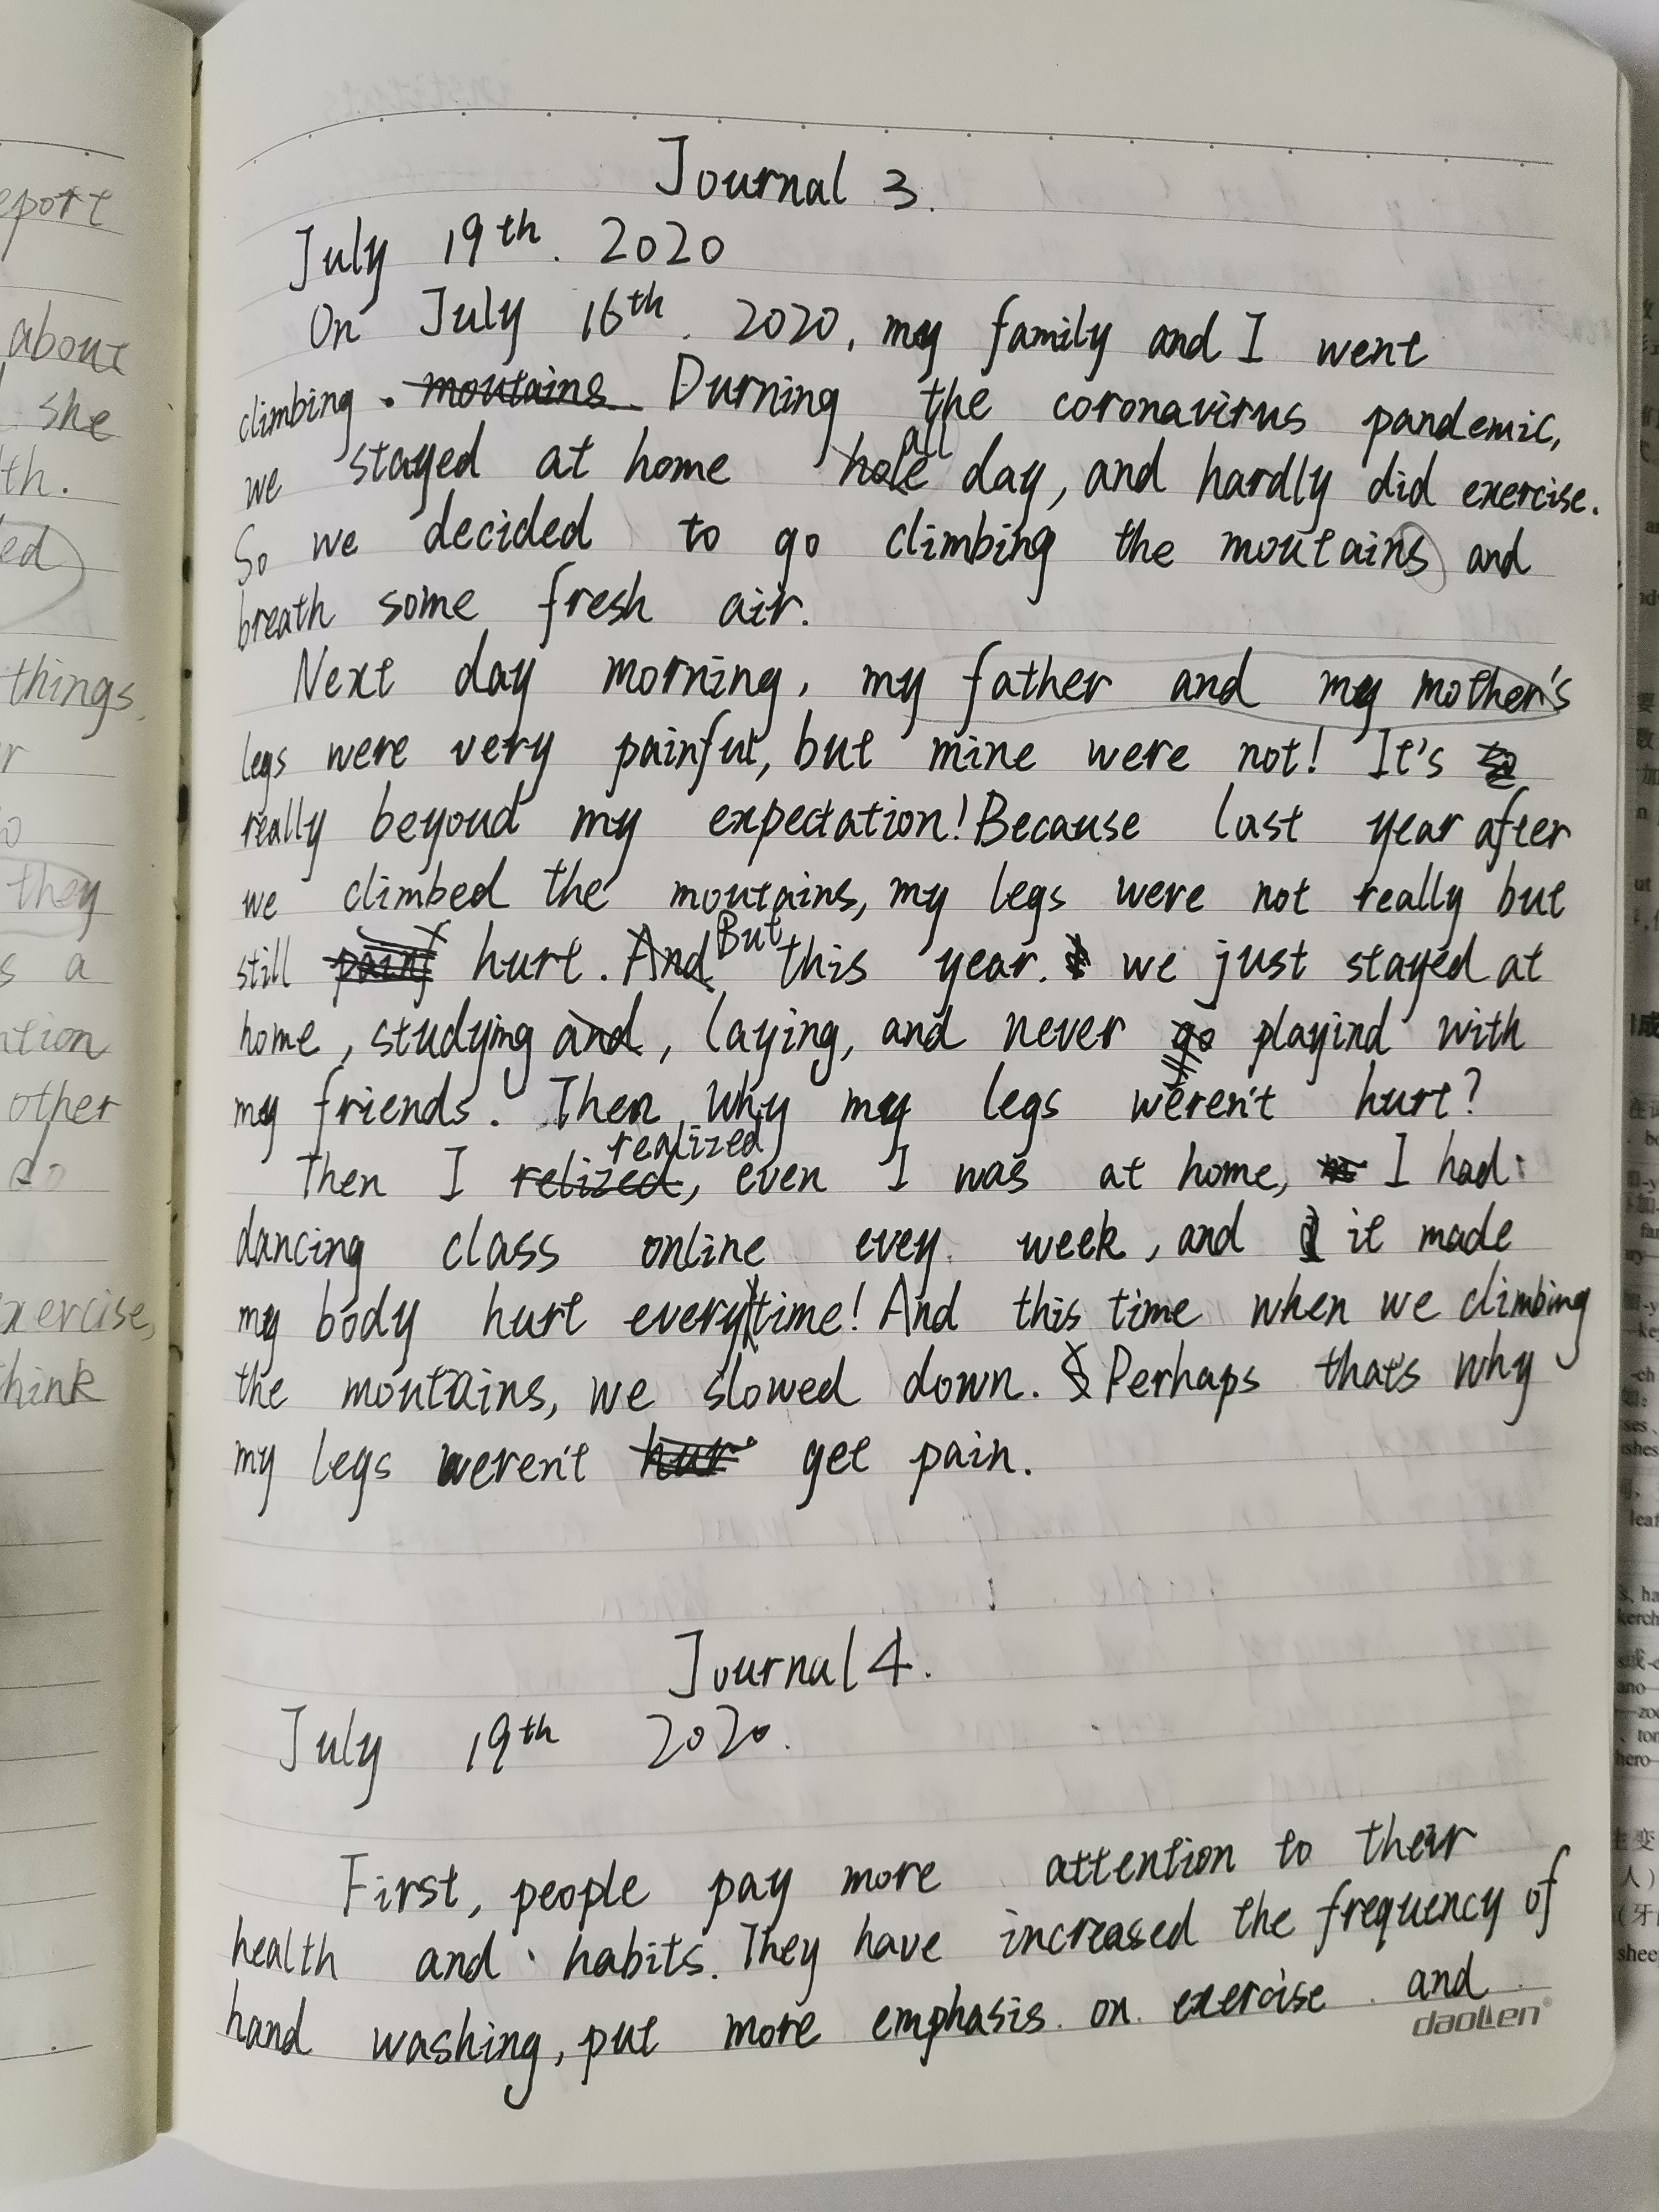 Journal 3.
July 19th. 2020
On July 16th. 2020, my family and I went
climbing. moutains Durning the coronavirus pandemic,
we stayed at home hole all day, and hardly did exercise.
So we decided to go climbing the moutains and
breath some fresh air.
Next day morning, my father and my mother's
legs were very painful, but mine were not! It's
really beyoud my expectation! Because last year after
we climbed the moutains, my legs were not really but
still hurt. And But this year. we just stayed at
home, studying and, laying, and never go playind with
my friends. Then why my legs weren't hurt?
Then I relized realized, even I was at home, I had
dancing class online evey. week, and it made
my body hurt every time! And this time when we climbing
the moutains, we slowed down. Perhaps that's why
my legs weren't hur get pain.
Journal 4.
July 19th 2020.
First, people pay more attention to their
health and habits. They have increased the frequency of
hand washing, put more emphasis on exercise and
daoLen
eport
about
she
th.
ed
things.
r
they
s a
ntion
other
do
xercise,
hink